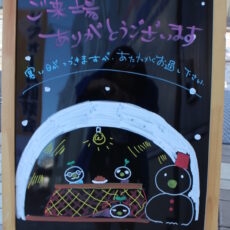 ご来場
ありがとうございます
寒い日がつづきますが、あたたかくお過し下さい。